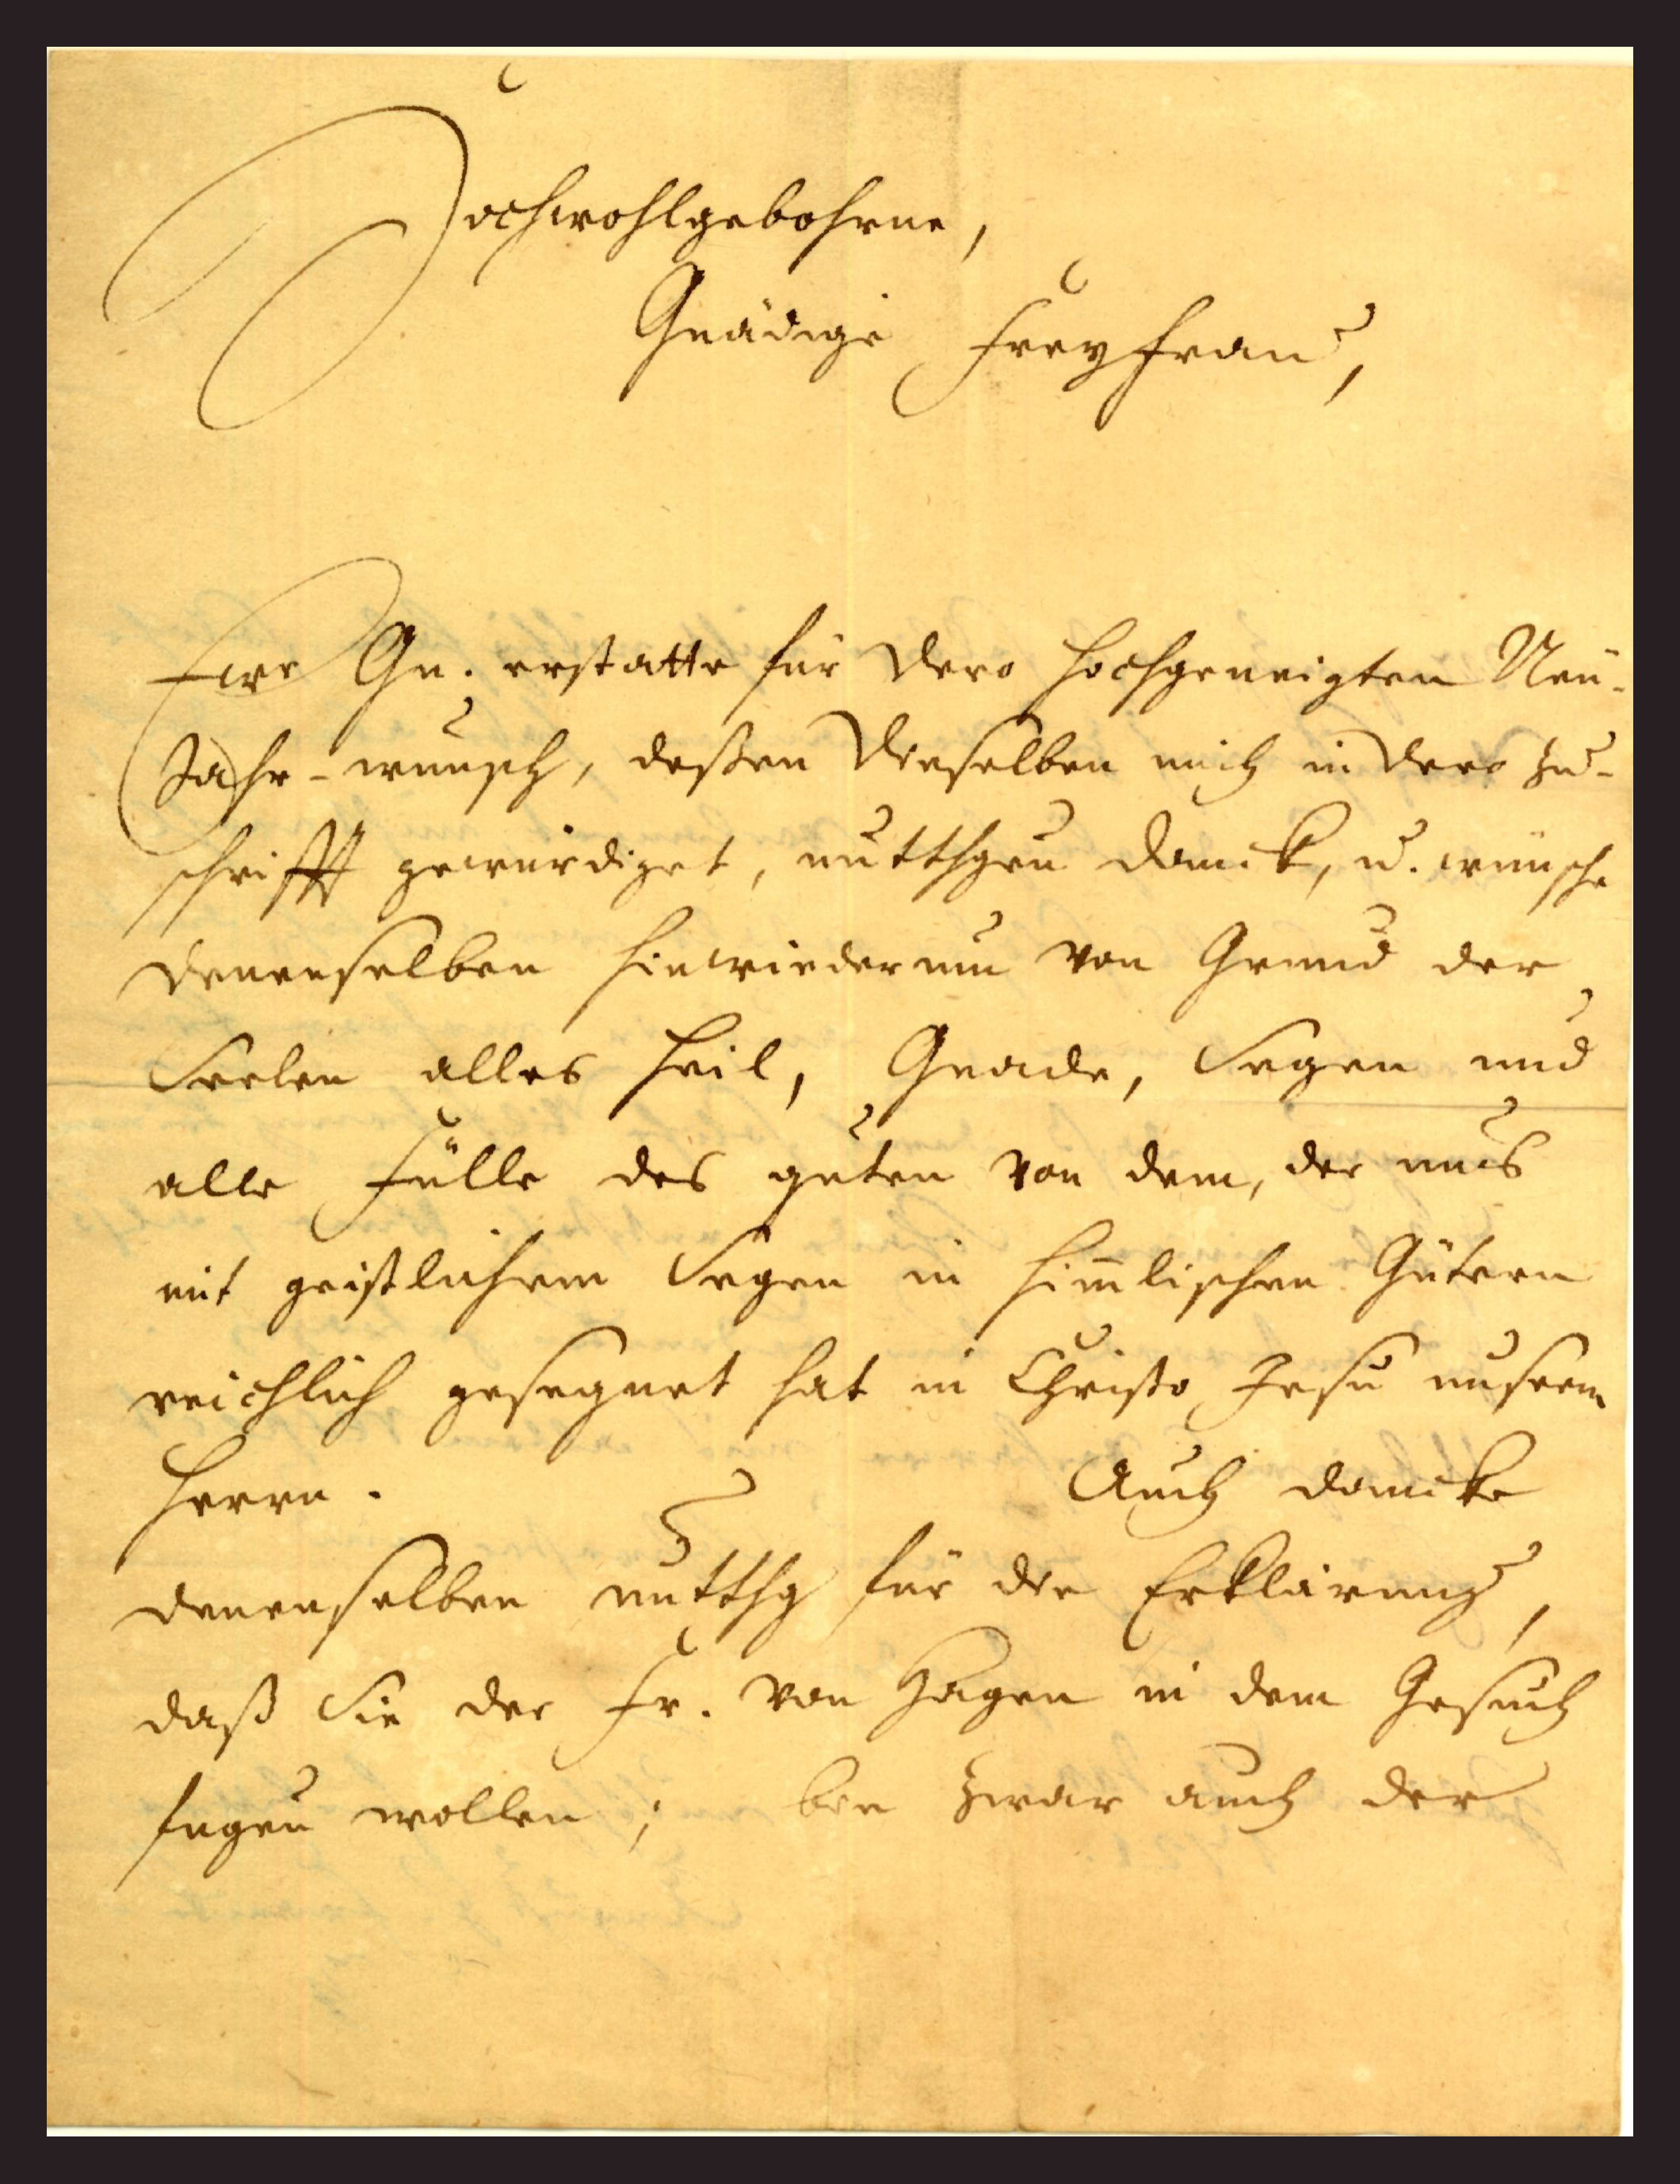 Hochwohlgebohrne,
Gnädige Freyfrau,
Ewr Gn. erstatte für Dero hochgeneigten Neu-
Jahr-wunsch, deßen Dieselben mich in Dero Zu-
schrifft gewürdiget, untthgen danck, u. wünsche
Denenselben hinwiederum von Grund der
Seelen alles Heil, Gnade, Segen und
alle Fülle des guten von dem, der uns
mit geistlichem Segen in himlischen Gütern
reichlich gesegnet hat in Christo Jesu unserm
Herrn. Auch dancke
Denenselben untthg für die Erklärung,
daß Sie der Fr. von Hagen in dem Gesuch
fugen wollen; bin zwar auch der